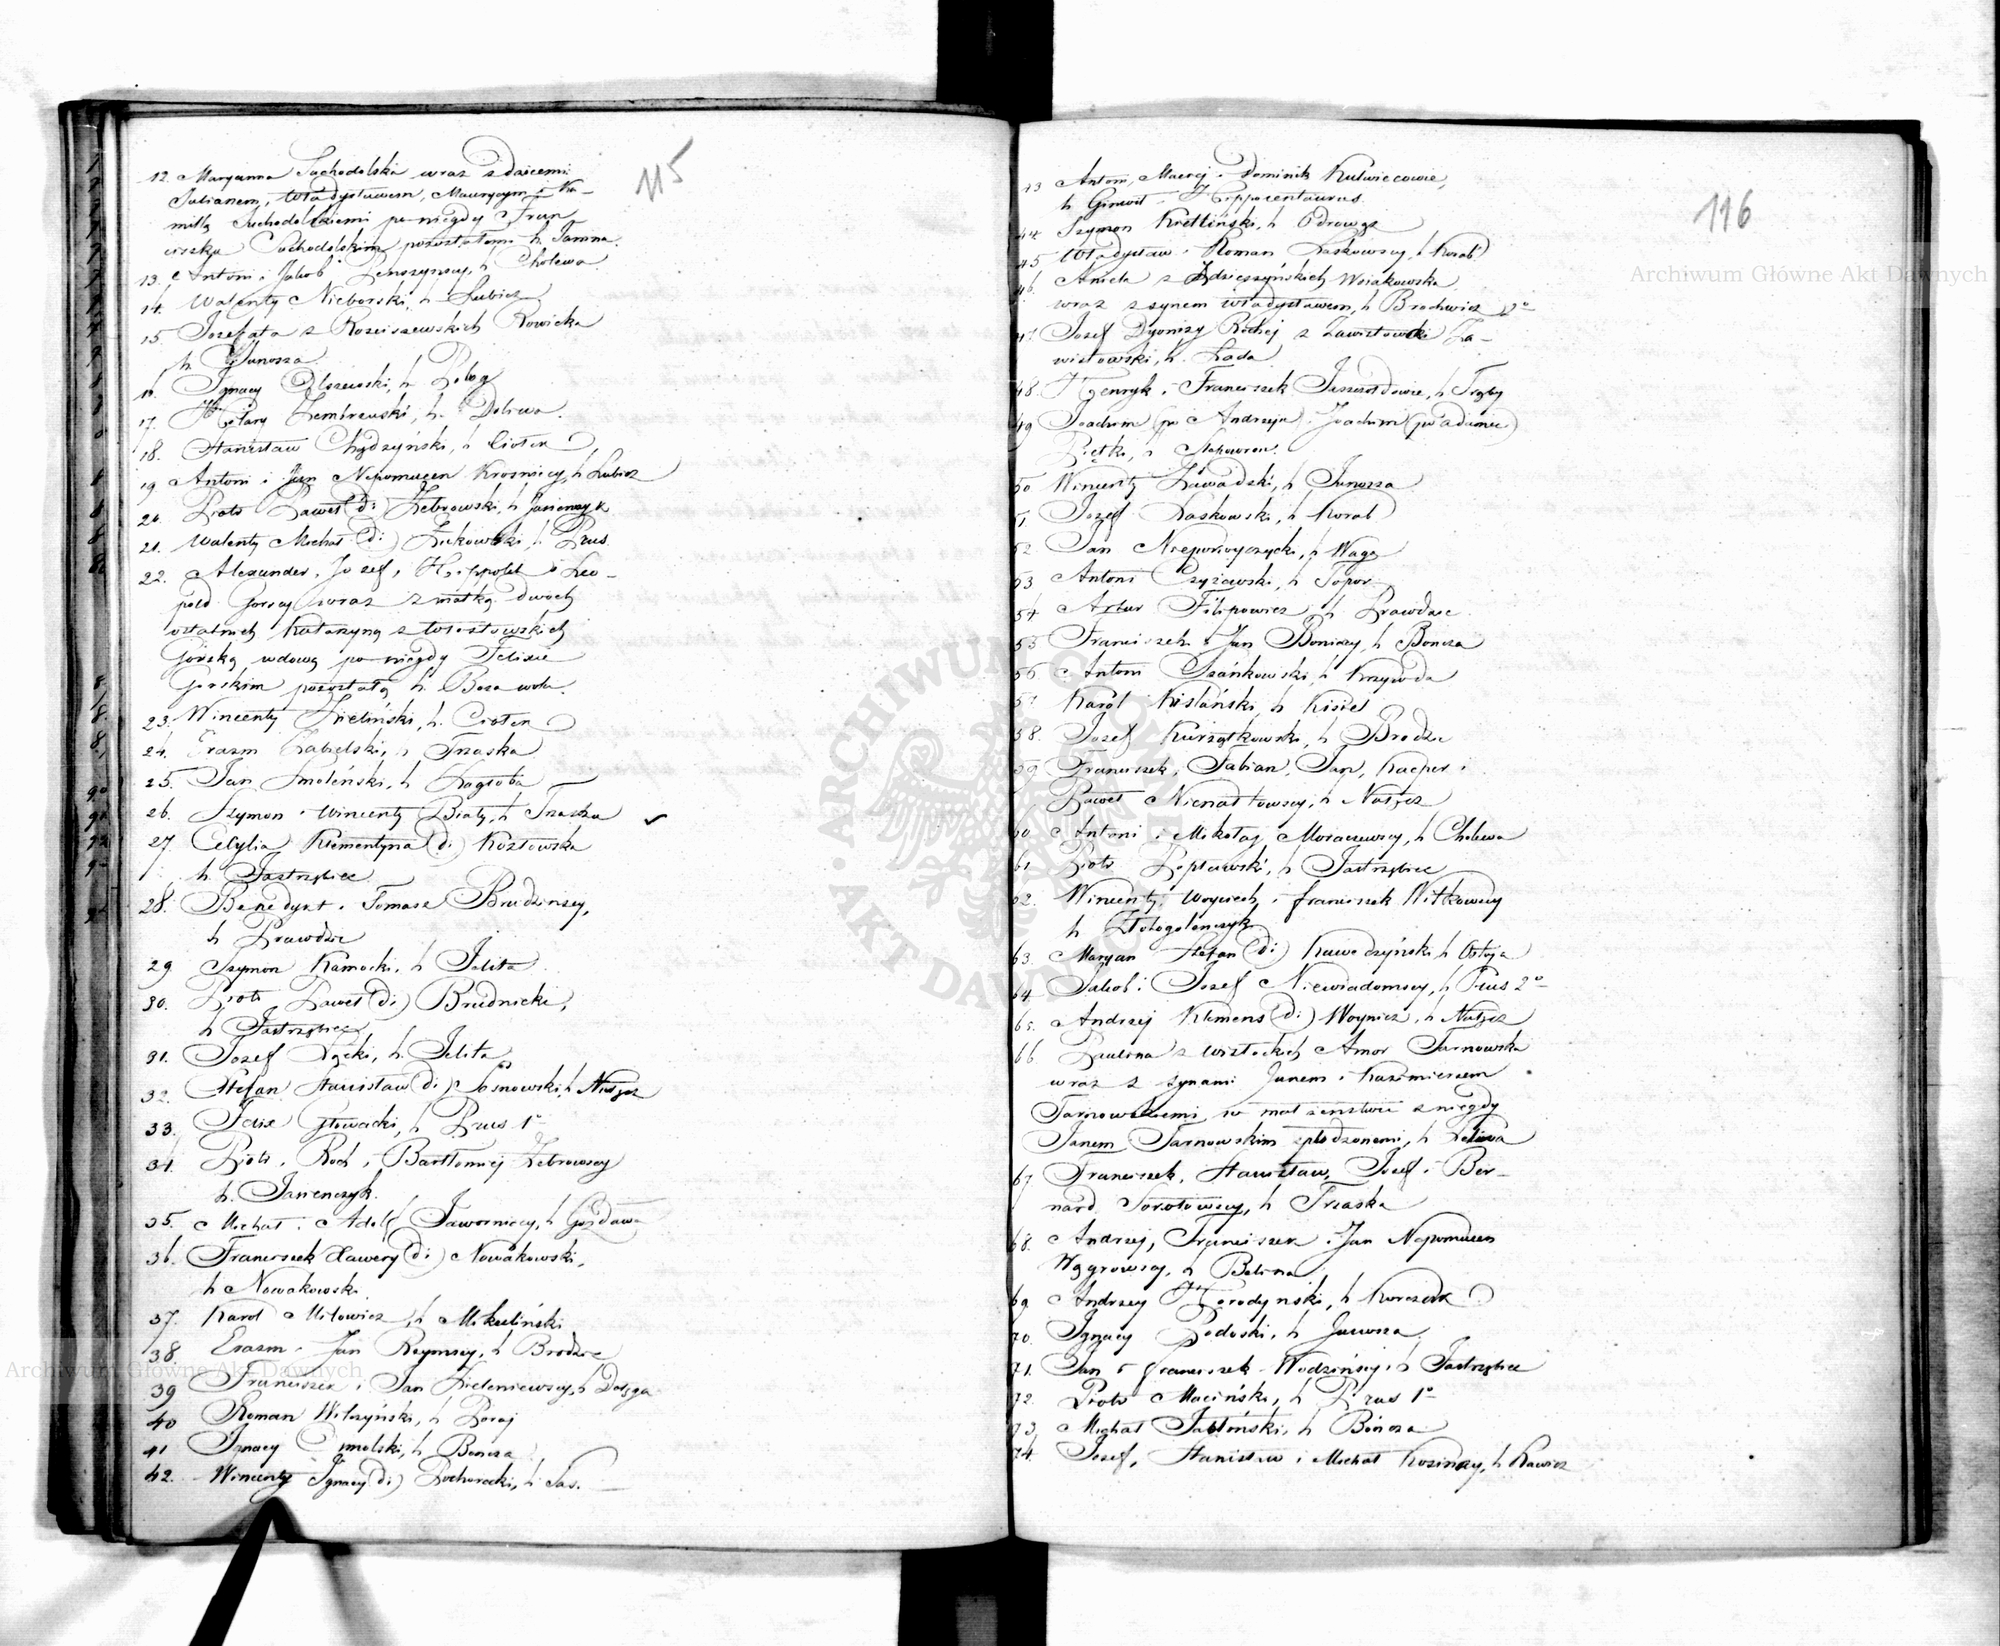 115
12. Maryanna Suchodolska wraz z dziećmi
Julianem, Władysławem, Maurycym i Ka-
millą Suchodolskiemi po niegdy Fran
ciszku Suchodolskim pozostałemi h. Janina.
13. Antoni i Jakób Lenszyńscy, h. Cholewa
14. Walenty Nieborski, h. Lubicz
15 Jozefata z Kosciszewskich Rowicka
h. Junosza
16. Ignacy Olszewski, h. Pobog
17. Hilary Zembrzuski, h. Dolewa.
18. Stanisław Chądzyński, h Ciołek
19 Antoni i Jan Nepomucen Krośniccy, h Lubicz
20. Piotr Paweł (2i) Żebrowski, h Jasieńczyk
21. Walenty Michał (2i) Żukowski, h Prus
22. Alexander, Jozef, Hippolit i Leo-
pold Gorscy wraz z matką dwóch
ostatnich Katarzyną z Wosłowskich
Górską wdową po niegdy Felixie
Gorskim pozostałą h. Boza wola.
23. Wincenty Zieliński, h. Ciołek
24. Erazm Zabielski, h Trzaska
25. Jan Smoleński, h Zagłoba
26. Szymon i Wincenty Biały, h Trzaska
27 Cecylia Klementyna (2i) Kozłowska
h. Jastrzębiec
28. Benedykt i Tomasz Brudzińscy,
h Prawdzic
29 Szymon Kamocki, h Jelita
30. Piotr Paweł (2i) Brudnicki,
h Jastrzębiec
31. Jozef Łącki, h. Jelita
32. Stefan Stanisław (2i) Sosnowski, h Nałęcz
33. Felix Głowacki, h Prus 1o
34. Piotr, Roch i Bartłomiej Żebrowscy
h. Jasieńczyk.
35. Michał i Adolf Jaworniccy, h Gozdawa
36. Franciszek Xawery (2i) Nowakowski,
h Nowakowski.
37. Karol Miłowicz, h Mikuliński
38. Erazm i Jan Reymscy, h Brodzic
39 Franciszek i Jan Zieleniewscy, h Dołęga
40 Roman Wilczyński, h Poraj
41 Ignacy Smolski, h Boncza
42. Wincenty Ignacy (2i) Pochorecki, h Sas.
116
43 Antoni, Maciej i Dominik Kulwiecowie,
h Giniwił i Hippocentaurus.
44 Szymon Kretliński, h Odrowąż
45 Władysław i Roman Laskowscy, h Korab
46. Aniela z Zdzieszyńskich Wosiakowska
wraz z synem Władysławem, h Brochwicz 2o
47. Jozef Dyonizy Rochej z Zawistowski Za-
wistowski, h. Łada
48. Henryk i Franciszek Jaszowdowie, h Trąby
49 Joachim (po Andrzeju) i Joachim (po Adamie)
Piętki, h Slepowron.
50 Wincenty Zawadzki, h Junosza
51 Jozef Laskowski, h Korab
52 Jan Niepokoyczycki, h Wagę
53 Antoni Czyżewski, h Topor
54 Artur Filipowicz h Prawdzic
55 Franciszek i Jan Bonieccy, h Boncza
56 Antoni Szańkowski, h Krzywda
57 Karol Kislański h Kisiel
58. Jozef Kurzątkowski, h Brodzic
59 Franciszek, Fabian, Jan, Kacper i
Paweł Nienałtowscy, h Nałęcz
60 Antoni i Mikołaj Moraczewscy, h Cholewa
61 Piotr Popławski, h Jastrzębiec
62. Wincenty, Woyciech i Franciszek Witkowscy
h Złotogolenczyk
63. Maryan Stefan (2i) Kawodzyński, h Ostoja
64 Jakob i Jozef Niewiadomscy, h Prus 2o
65. Andrzej Klemens (2i) Woynicz, h Nałęcz
66 Paulina z Wisłockich Amor Tarnowska
wraz z synami Janem i Kazimierzem
Tarnowskiemi w małżeństwie z niegdy
Janem Tarnowskim spłodzonemi, h Leliwa
67 Franciszek, Stanisław, Jozef i Ber-
nard Sorotowscy, h Trzaska
68. Andrzej, Franciszek i Jan Nepomucen
Węgrowscy, h Belina
69. Andrzey Horodynski, h Korczak
70. Ignacy Rodoski, h Junosza
71. Jan i Franciszek Wodzińscy, h Jastrzębiec
72. Piotr Maciński, h Prus 1o
73. Michał Jabłoński, h Bończa
74. Jozef, Stanisław i Michał Kozińscy, h Rawicz
Archiwum Główne Akt Dawnych
Archiwum Główne Akt Dawnych
ARCHIWUM GŁÓWNE AKT DAWNYCH